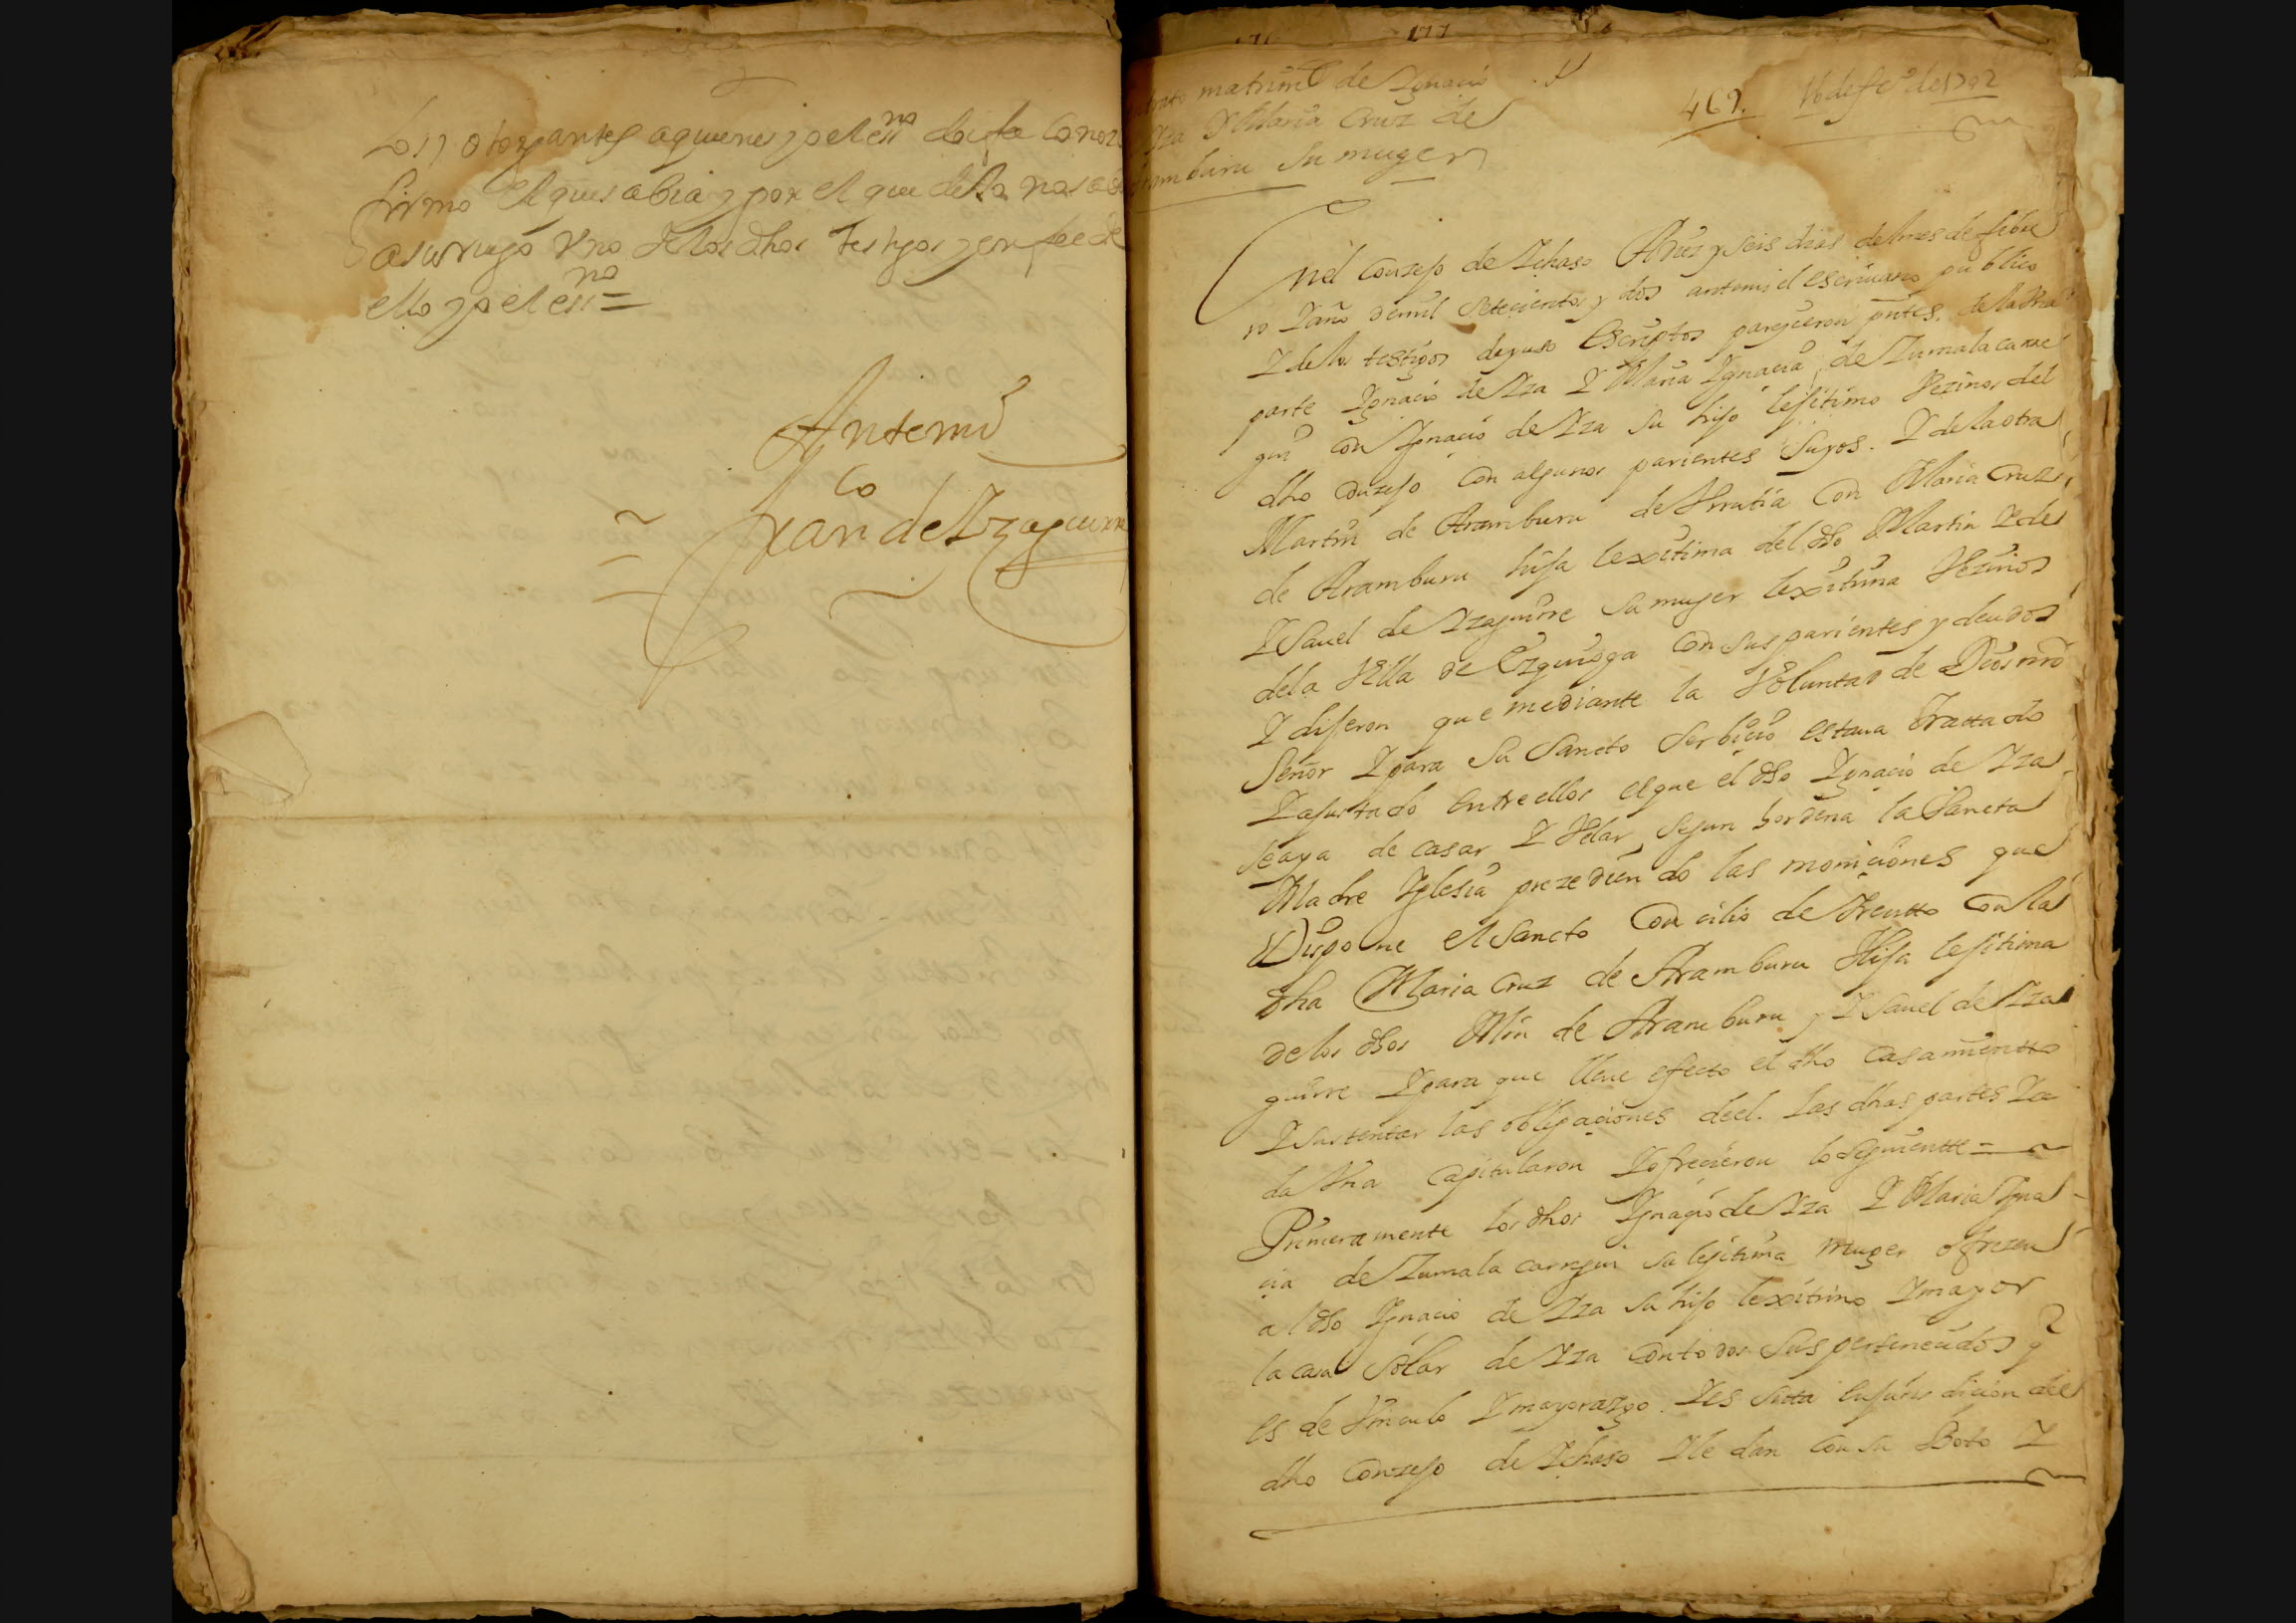 Los otorgantes a quienes yo el essno doi fe conozco
firmo el que sabia y por el que dixo no saber
a su ruego vno de los dhos testigos y en fee de
ello yo el essno =
Antemi
Franco de Yzaguirre
177
matriml de Ygnacio
Yza y Maria Cruz de
Aramburu su muger
469. 16 de feo de 1702
En el conzejo de Ychaso A diez y seis dias del mes de febre
ro Y año de mil setecientos y dos antemi el escriuano publico
Y de los testigos deyuso escriptos parezieron pntes. de la vna
parte Ygnacio de Yza Y Maria Ygnacia de Zumalacarre
gui con Ygnacio de Yza su hijo lejitimo Vezinos del
dho conzejo con algunos parientes suyos. Y de la otra
Martin de Aramburu de Vrrutia con Maria Cruz
de Aramburu hija lexitima del dho Martin Y de
Ysauel de Yzaguirre su muger lexitima Vezinos
dela Villa de Ezquioga con sus parientes y deudos
Y dijeron que mediante la Voluntad de Dios nro
Señor Y para su sancto serbicio estaua trattado
Y ajustado entre ellos el que el dho Ygnacio de Yza
se aya de casar Y Velar segun hordena la Sancta
Madre Yglesia prezediendo las moniciones que
Dispone el Sancto Concilio de Trentto con la
dha Maria Cruz de Aramburu Hija lejitima
de los dhos Mrn de Aramburu y Ysauel de Yza
guirre Y para que lleue efecto el dho casamientto
Y sustentar las obligaciones de el. Las dhas partes Ca
da Vna capitularon Y ofrecieron lo seguientte =
Primeramente los dhos Ygnacio de Yza Y Maria Ygna
cia de Zumalacarregui su lejitima muger ofrezen
al dho Ygnacio de Yza su hijo lexitimo Y mayor
la casa solar de Yza con todos sus pertenecidos q
es de Vinculo Y mayorazgo. Y es sitta en jurisdicion del
dho Conzejo de Ychaso Y le dan con su Boto Y